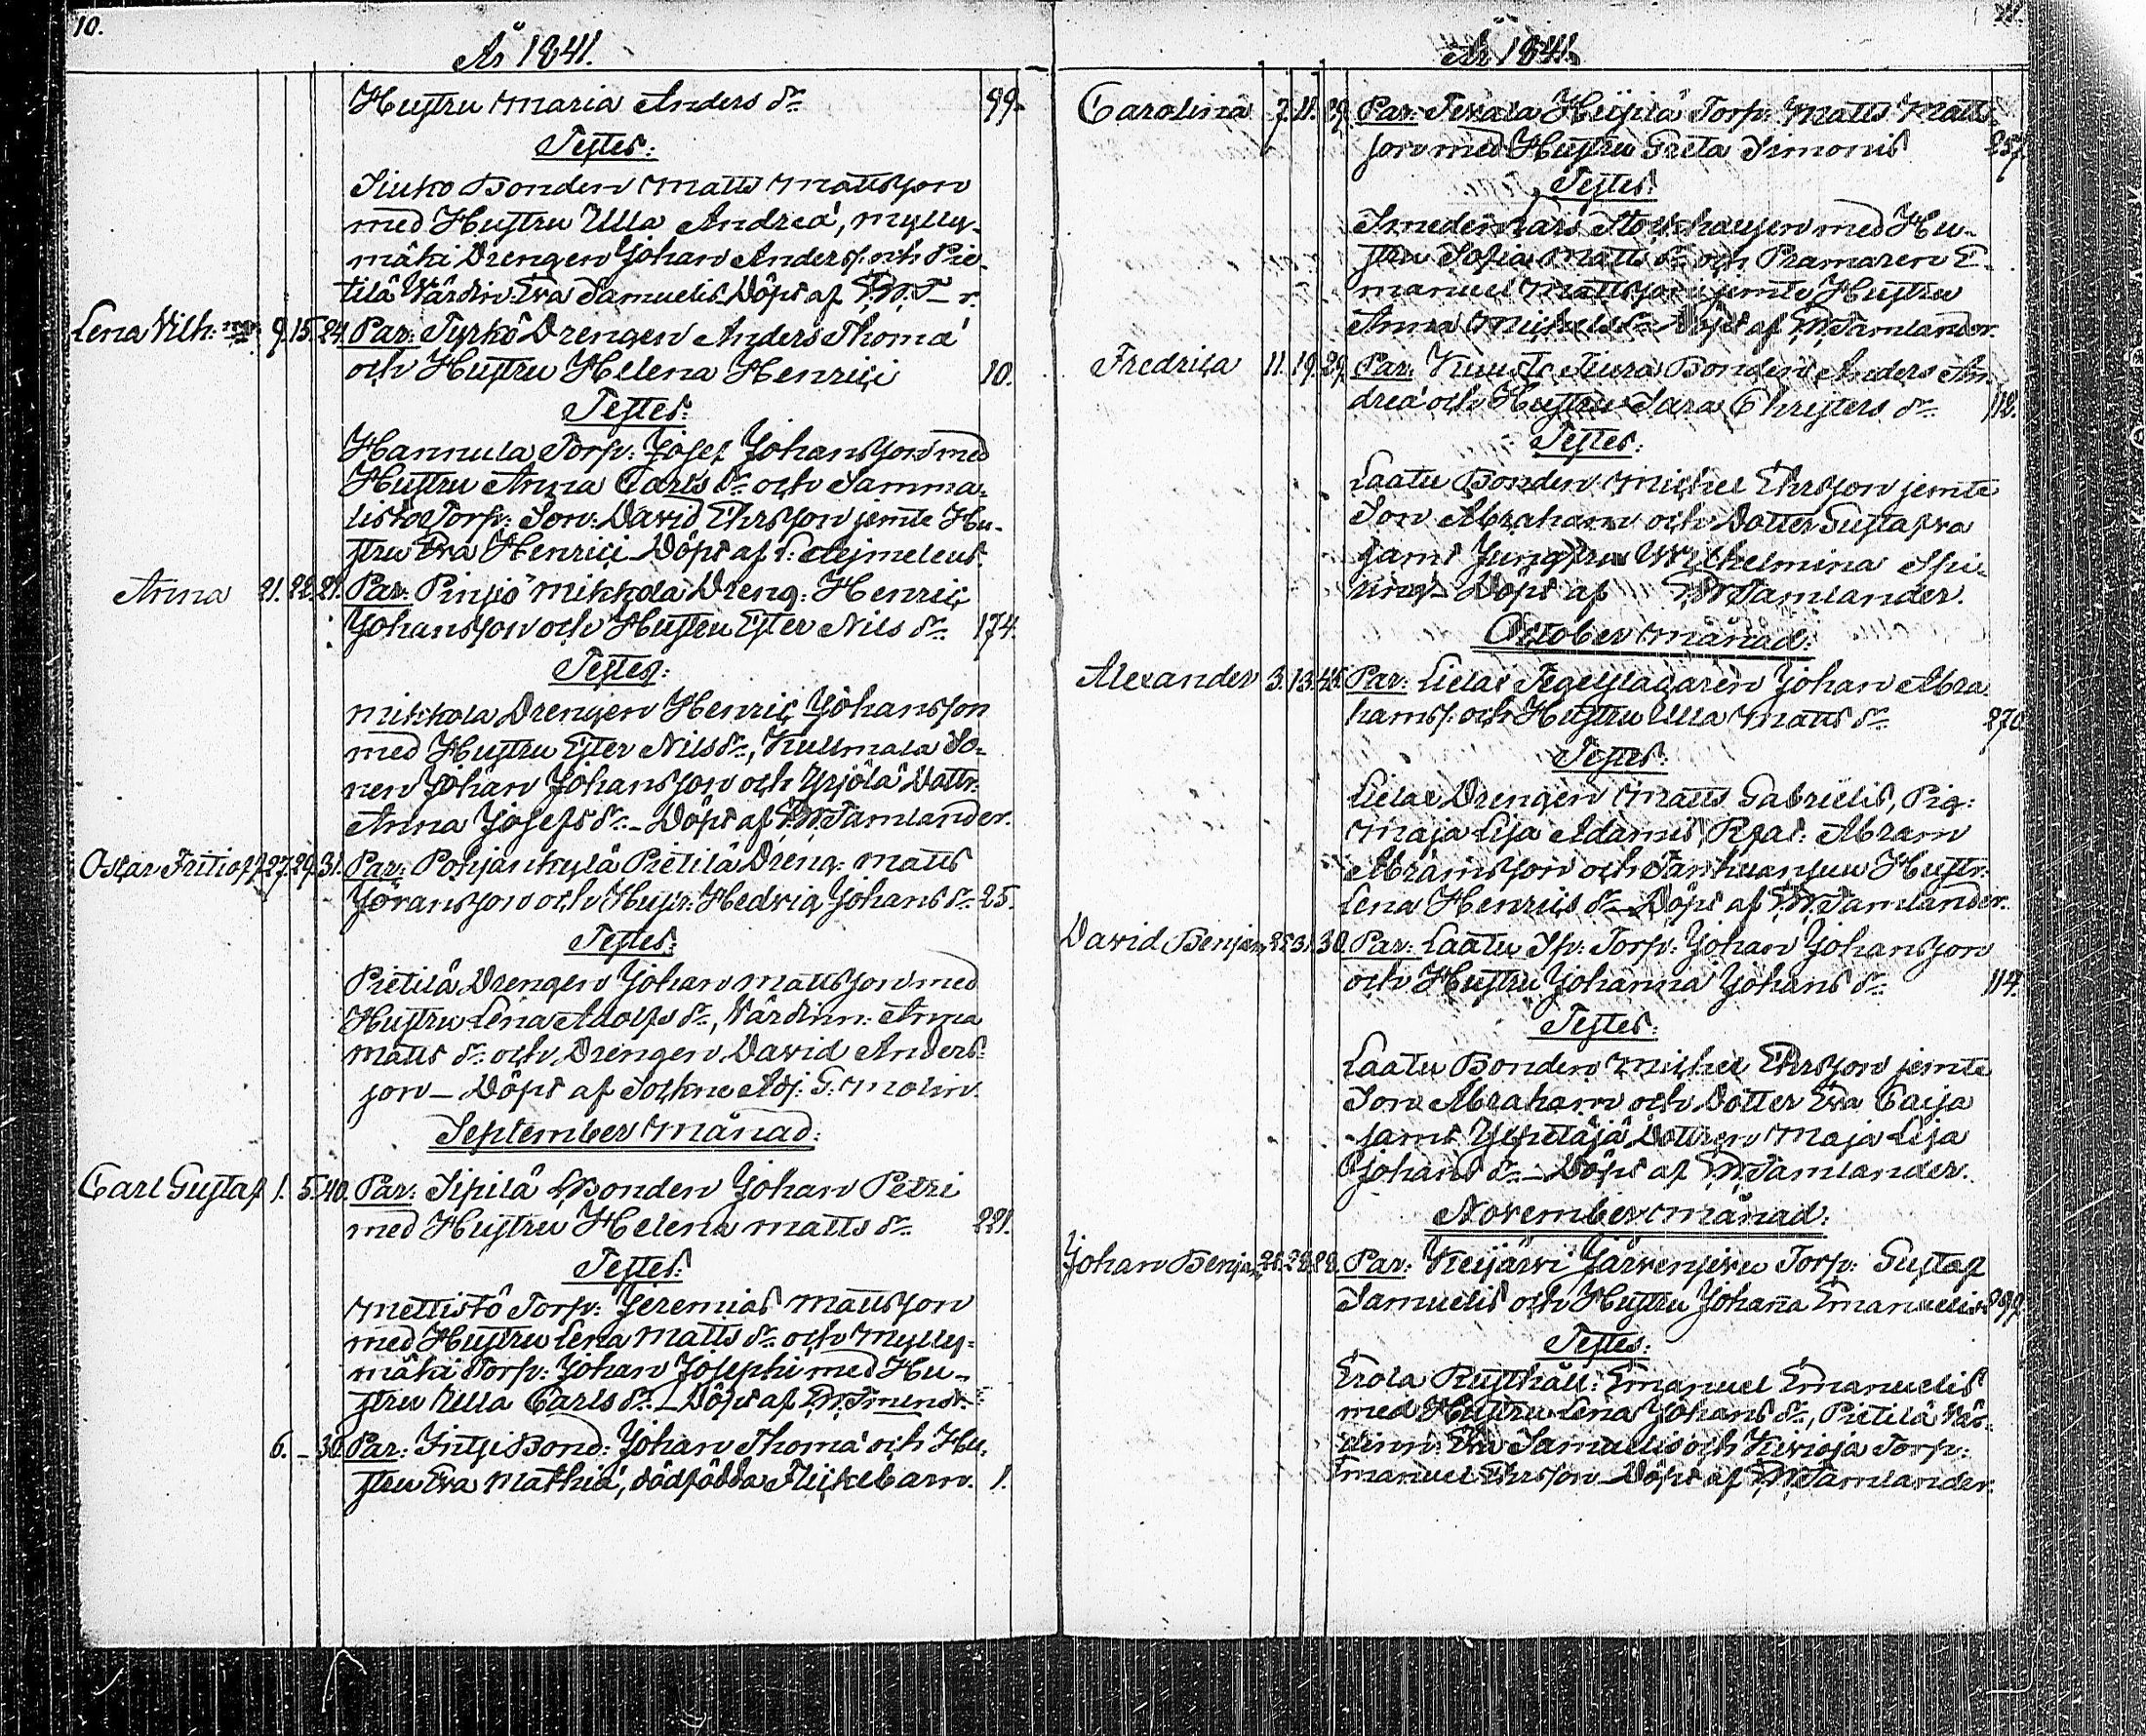 10.
År 1841.
Hustru Maria Anders dr. 99.
Testes:
Siuko Bonden Matts Mattsson
med Hustru Ulla Andreæ, Mylly-
mäki Drengen Johan Anders. och Pie-
tilä Värdin: Eva Samuelis. Döpt af P.M. T–r.
Lena Vilh:na 9. 15. 24. Par: Tyrkö Drengen Anders Thomæ
och Hustru Helena Henrici 10.
Testes:
Hannula Torp: Josef Johansson med
Hustru Anna Carls dr. och Samma-
listo Torp: Son: David Ehrsson jemte Hu-
stru Eva Henrici. Döpt af S: Aejmeleus.
Anna 21. 22. 21. Par: Pinsiö Mikkola Dreng: Henric
Johansson och Hustru Ester Nils dr. 174.
Testes:
Mikkola Drengen Henric Johansson
med Hustru Ester Nils dr., Kullmala So-
nen Johan Johansson och Yrjölä Dottr.
Anna Josefs dr. – Döpt af P.M. Tamlander.
Oscar Fritiof 27. 29. 31. Par: Pohjankylä Pietilä Dreng: Matts
Göransson och Hustr: Hedvig Johans dr. 25.
Testes:
Pietilä Drengen Johan Mattsson med
Hustru Lena Adolfs dr., Värdinn: Anna
Matts dr. och Drengen David Anders-
son – Döpt af Sockne Adj: G: Molin.
September Månad:
Carl Gustaf 1. 5. 40. Par: Sipilä Bonden Johan Petri
med Hustru Helena Matts dr. 221.
Testes:
Mettistö Torp: Jeremias Mattsson
med Hustru Lena Matts dr. och Mylly-
mäki Torp: Johan Josephi med Hu-
stru Ulla Carls dr. – Döpt af P.M.
6. – 30. Par: Intsi Bond: Johan Thomæ och Hu-
stru Eva Mathiæ, dödfödda Flickebarn. 1.
År 1841.
Carolina 7. 11. 29. Par: Tevala Heisilä Torp: Matts Matts-
son med Hustru Greta Simonis 257.
Testes:
Smeden Lars Stockhausen med Hu-
stru Sofia Matts dr. och Pramaren E-
manuel Mattsson jemte Hustru
Anna Michels dr. Döpt af P.M. Tamlander.
Fredrica 11. 19. 29. Par: Kuusto Tiura Bonden Anders An-
dreæ och Hustru Sara Christers dr. 112.
Testes:
Laatu Bonden Michel Ehrsson jemte
Son Abraham och Dotter Gustafva
samt Jungfru Wilhelmina
Döpt af P.M. Tamlander.
October Månad:
Alexander 3. 13. 41. Par: Lielax Tegelslagaren Johan Abra-
hams. och Hustru Ulla Matts dr. 270.
Testes:
Lielax Drengen Matts Gabrielis, Pig:
Maja Lisa Adamis, Abram
Abramsson och Hustr:
Lena Henrics dr. Döpt af P.M. Tamlander.
David Benjam: 25. 31. 30. Par: Laatu Sp: Torp: Johan Johansson
och Hustru Johanna Johans dr. 114.
Testes:
Laatu Bonden Michel Ehrsson jemte
Son Abraham och Dotter Eva Caisa
samt Dottren Maja Lisa
Johans dr. – Döpt af P.M. Tamlander.
November Månad:
Johan Benjam: 26. 28. 22. Par: Keijärvi Järvensivu Torp: Gustaf
Samuelis och Hustru Johanna Emanuelis
Testes:
Erola Rusthåll: Emanuel Emanuelis
med Hustru Lena Johans dr., Pietilä Vär-
dinn: Eva Samuelis och Kivioja Torp:
Emanuel Ehrsson – Döpt af P.M. Tamlander.